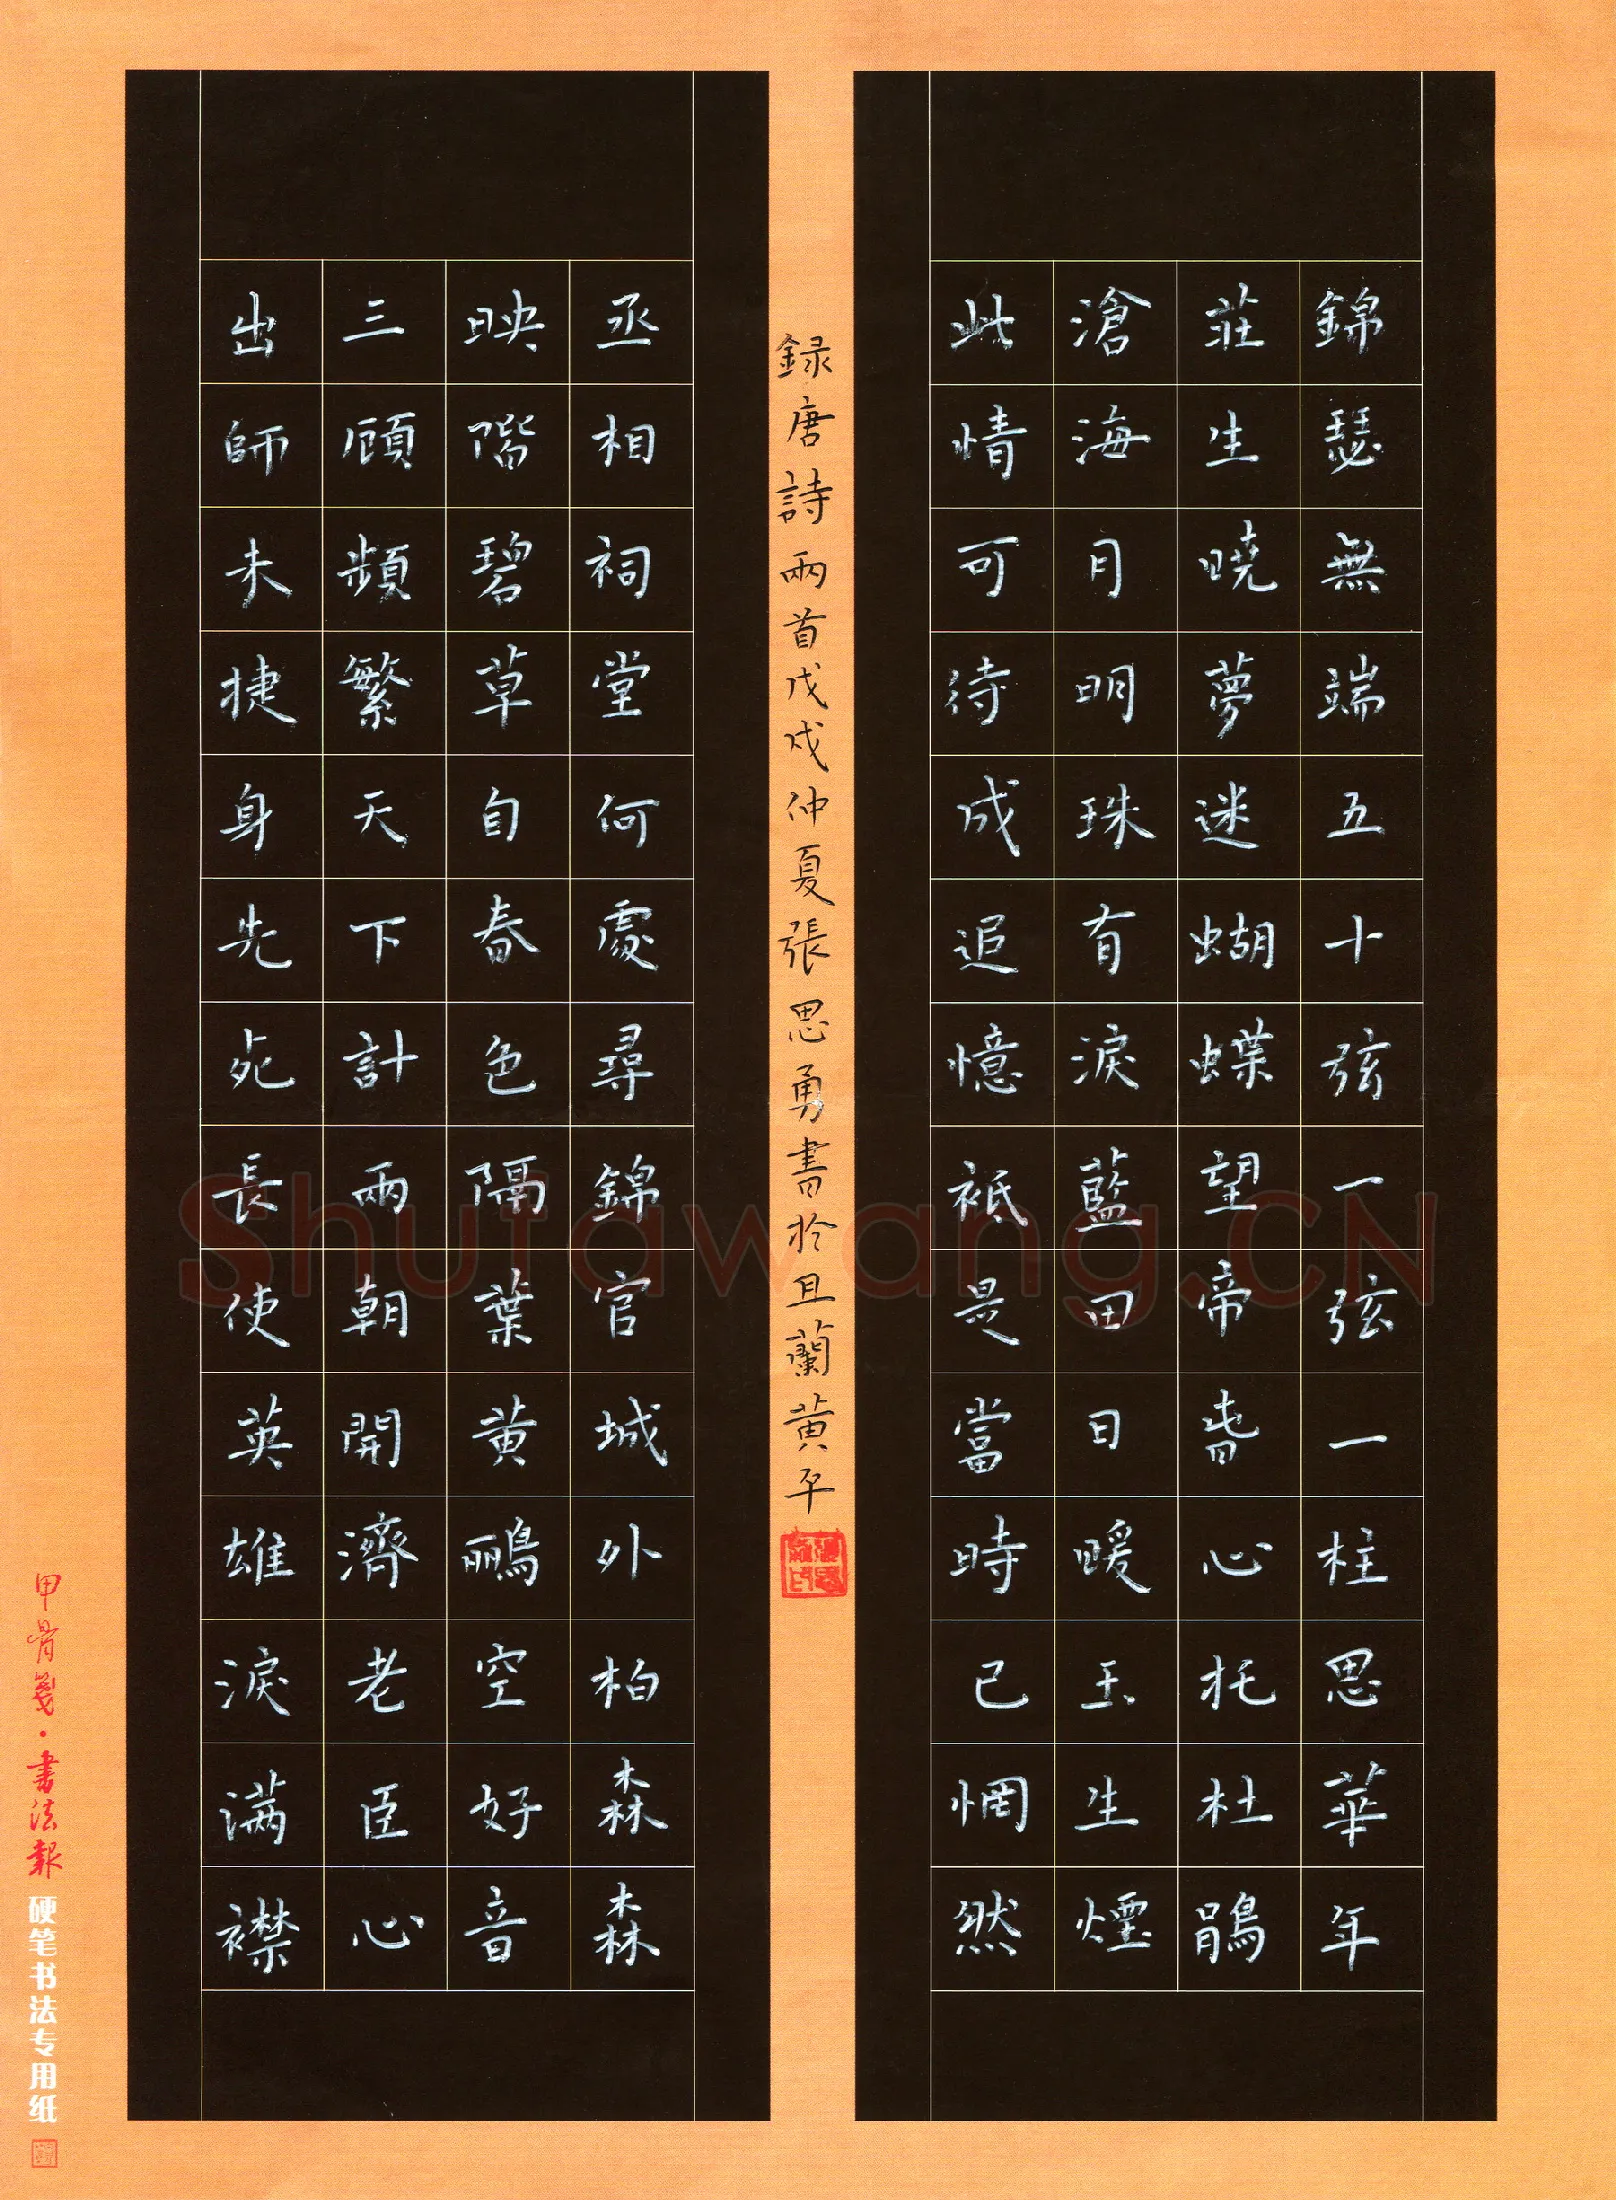 錦瑟無端五十弦一弦一柱思華年
莊生曉夢迷蝴蝶望帝春心托杜鵑
滄海月明珠有淚藍田日暖玉生煙
此情可待成追憶祗是當時已惘然
録唐詩兩首戊戌仲夏張思勇書於且蘭黄平
丞相祠堂何處尋錦官城外柏森森
映階碧草自春色隔葉黄鸝空好音
三顧頻繁天下計兩朝開濟老臣心
出師未捷身先死長使英雄淚满襟
甲骨箋·書法報
硬笔书法专用纸
Shufawang.CN